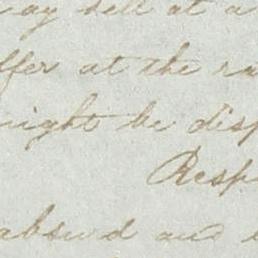 ay sell at a
ffer at the ra
might be disp
Resp
absurd and